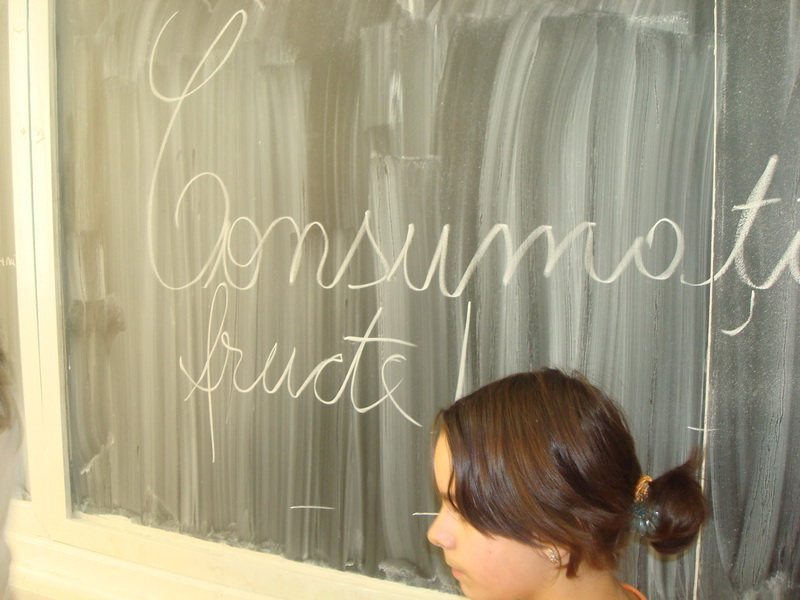 Consumați
fructe!